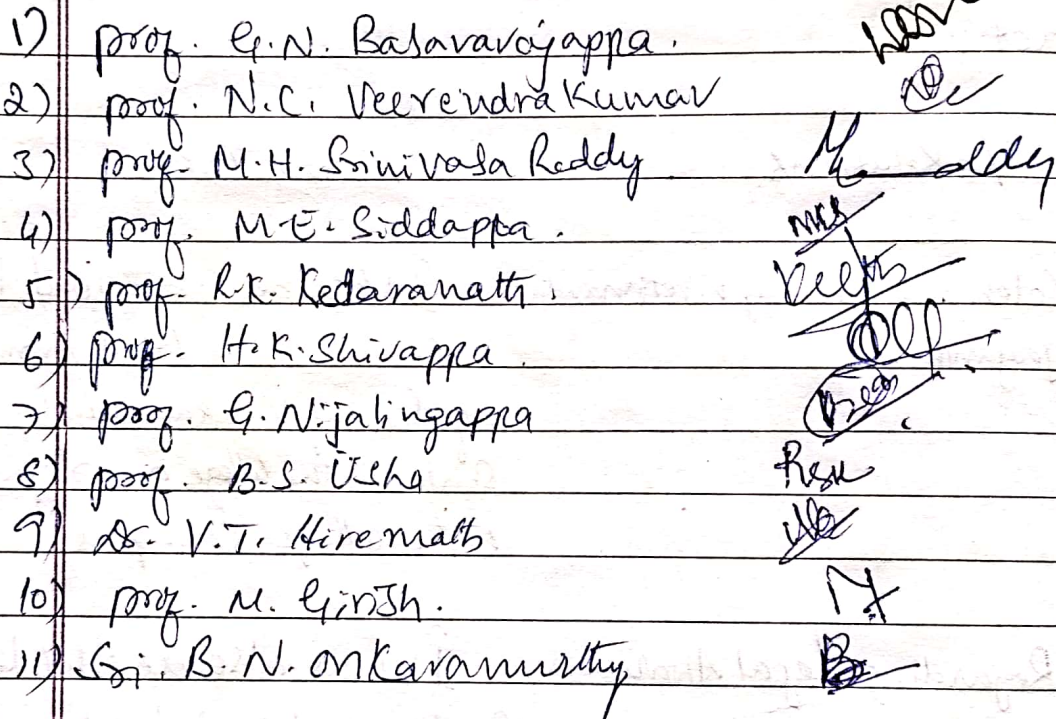 1) prof. G.N. Basavarajappa.
2) prof. N.C. Veerendra Kumar
3) prof. M.H. Srinivasa Reddy
4) prof. M.E. Siddappa.
5) prof. R.K. Kedaranath.
6) prof. H.K. Shivappa.
7) prof. G. Nijalingappa
8) prof. B.S. Usha
9) Dr. V.T. Hiremath
10) prof. M. Girish.
11) Sri. B.N. Onkaramurthy